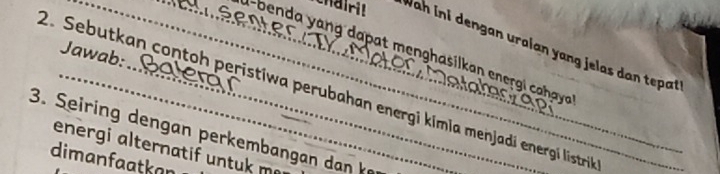 ndiri!
wah ini dengan uraian yang jelas dan tepat!
-benda yang dapat menghasilkan energi cahaya!
senter, TV, Motor, Matahari, api
2. Sebutkan contoh peristiwa perubahan energi kimia menjadi energi listrik!
Jawab: Baterai
3. Seiring dengan perkembangan dan
energi alternatif untuk
dimanfaatkan